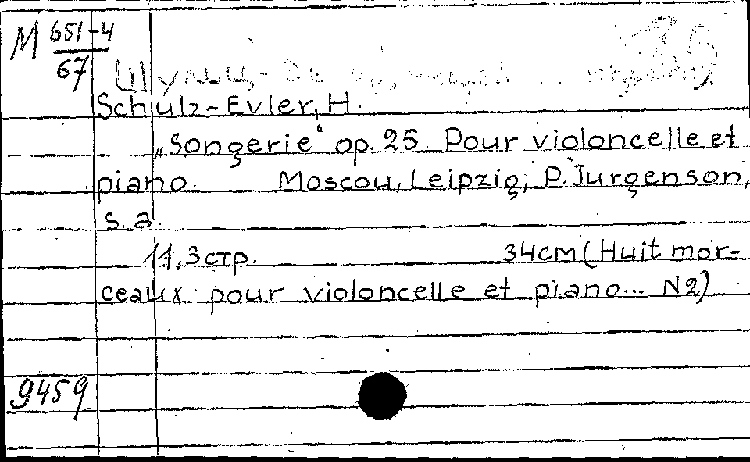 M 651-4
67
Schulz-Evler, H.
„Songerie“ op. 25. Pour violoncelle et
piano. Moscou, Leipzig, P. Jurgenson,
s.a.
11, 3 стр. 34 см (Huit mor-
ceaux pour violoncelle et piano... N2)
9459